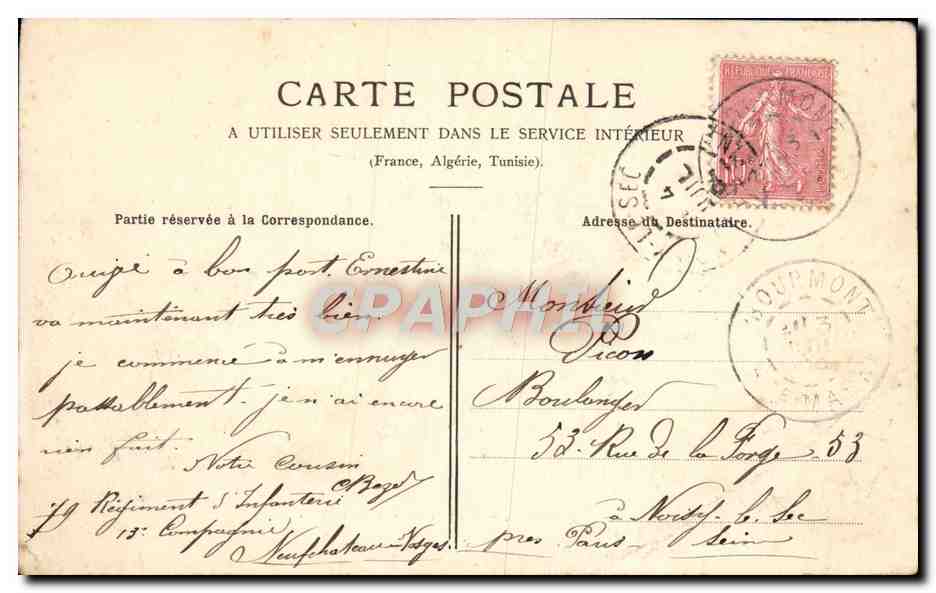 CARTE POSTALE
A UTILISER SEULEMENT DANS LE SERVICE INTÉRIEUR
(France, Algérie, Tunisie).
REPUBLIQUE FRANÇAISE
10
Partie réservée à la Correspondance.
Adresse du Destinataire.
à bon port. Ernestine
va maintenant très bien.
je commence à m'ennuyer
passablement. je n'ai encore
rien fait.
Notre cousin
79 Régiment d'Infanterie
13e Compagnie
Neufchateau - Vosges.
Monsieur
Picon
Boulanger
53 - Rue de la Forge - 53
à Noisy-le-Sec
près Paris - Sein
BOURMONT
CPAPHIL